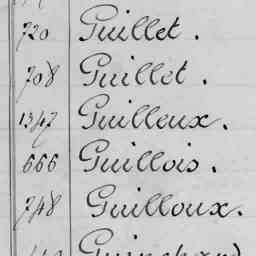 720 Guillet.
708 Guillet.
1347 Guilleux.
666 Guillois.
748 Guilloux.